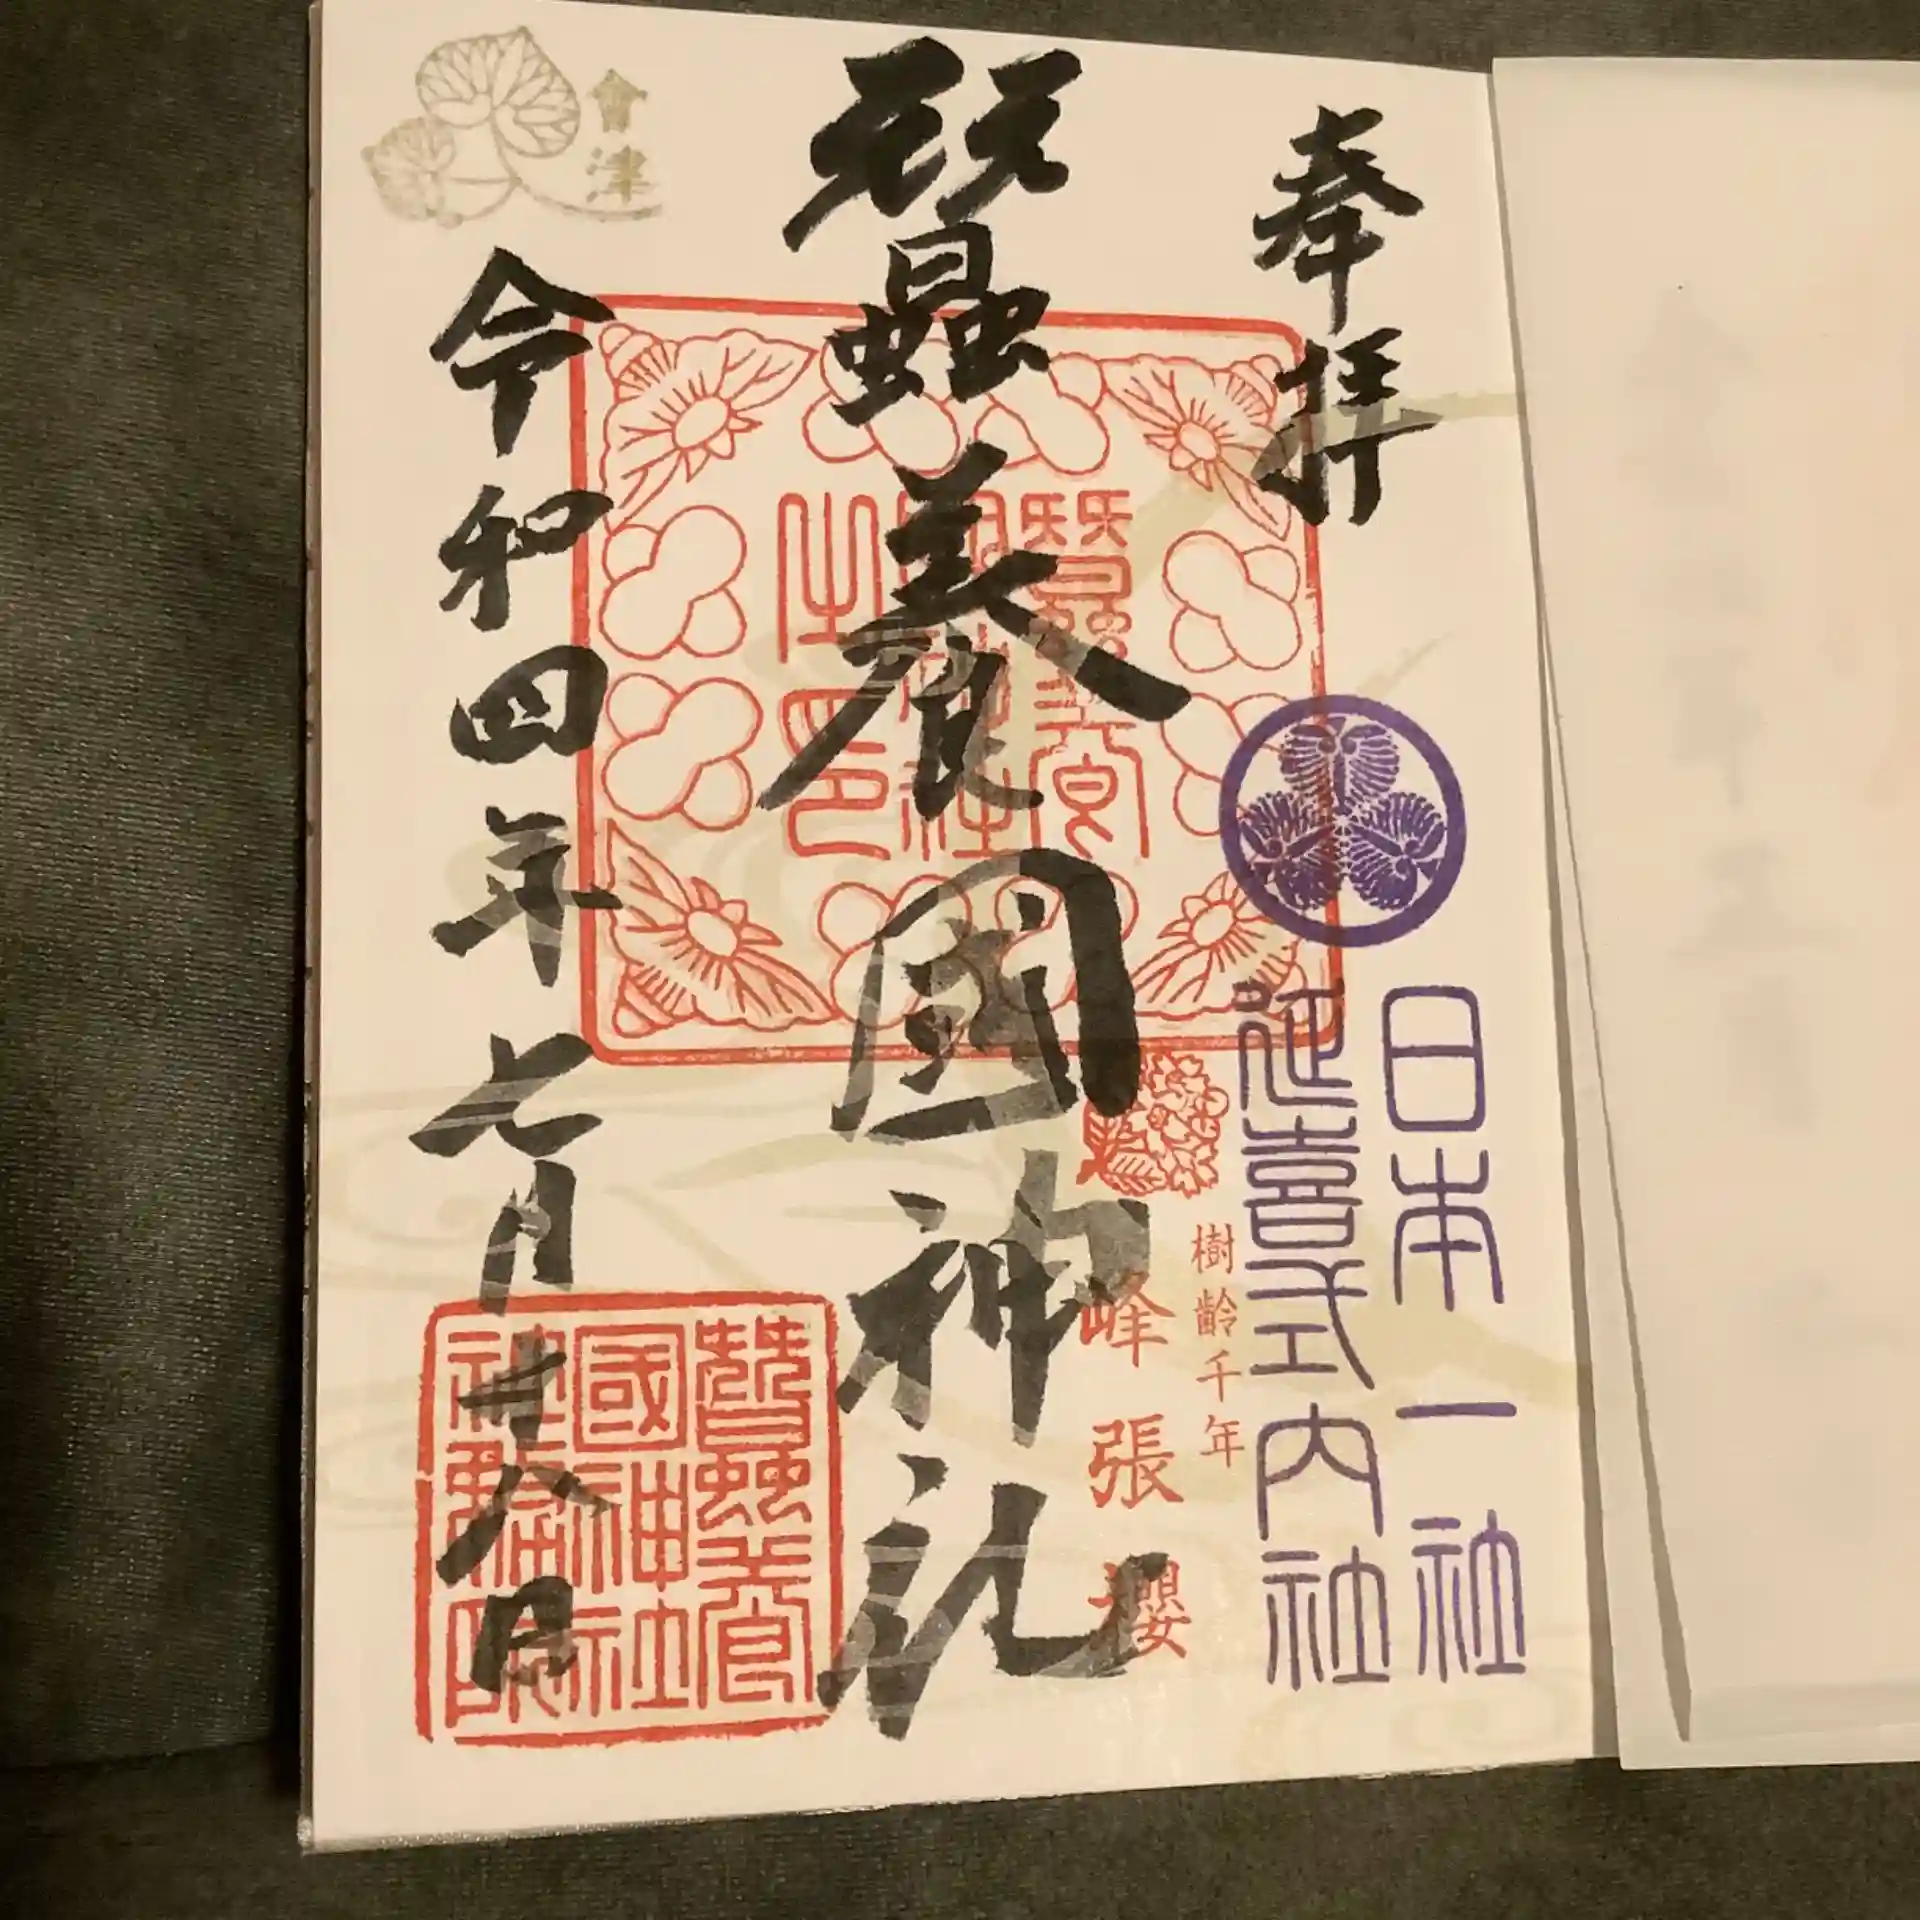 奉拝
日本一社
延喜式内社
樹齢千年
峰張櫻
蠶養國神社
蠶養
國神社
之印
會津
令和四年七月廿八日
蠶養
國神社